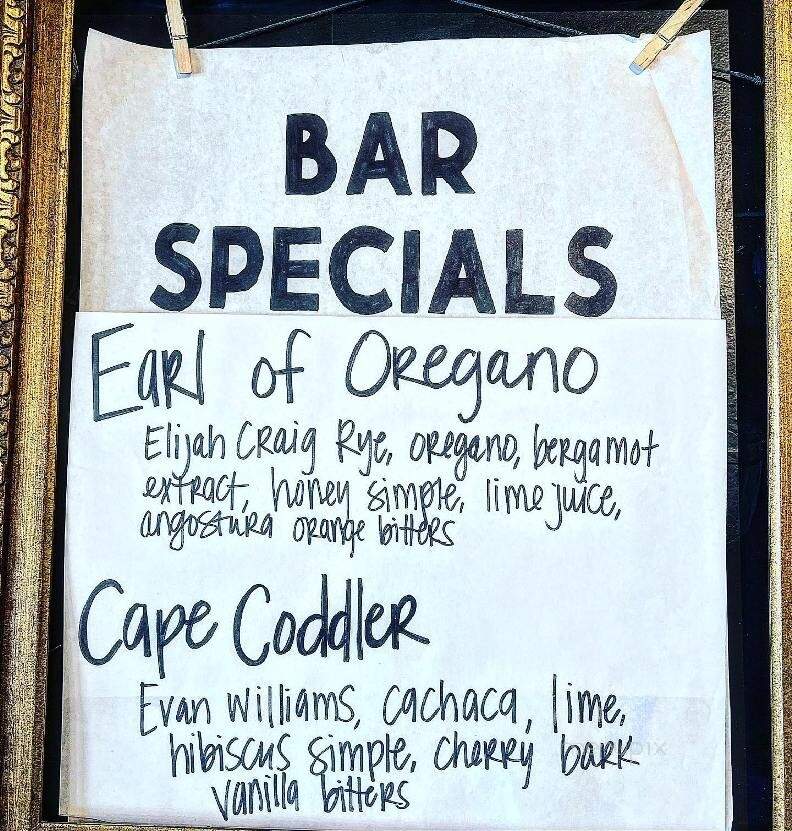 BAR
SPECIALS
Earl of Oregano
Elijah Craig Rye, oregano, bergamot
extract, honey simple, lime juice,
angostura orange bitters
Cape Coddler
Evan Williams, cachaca, lime,
hibiscus simple, cherry bark
vanilla bitters